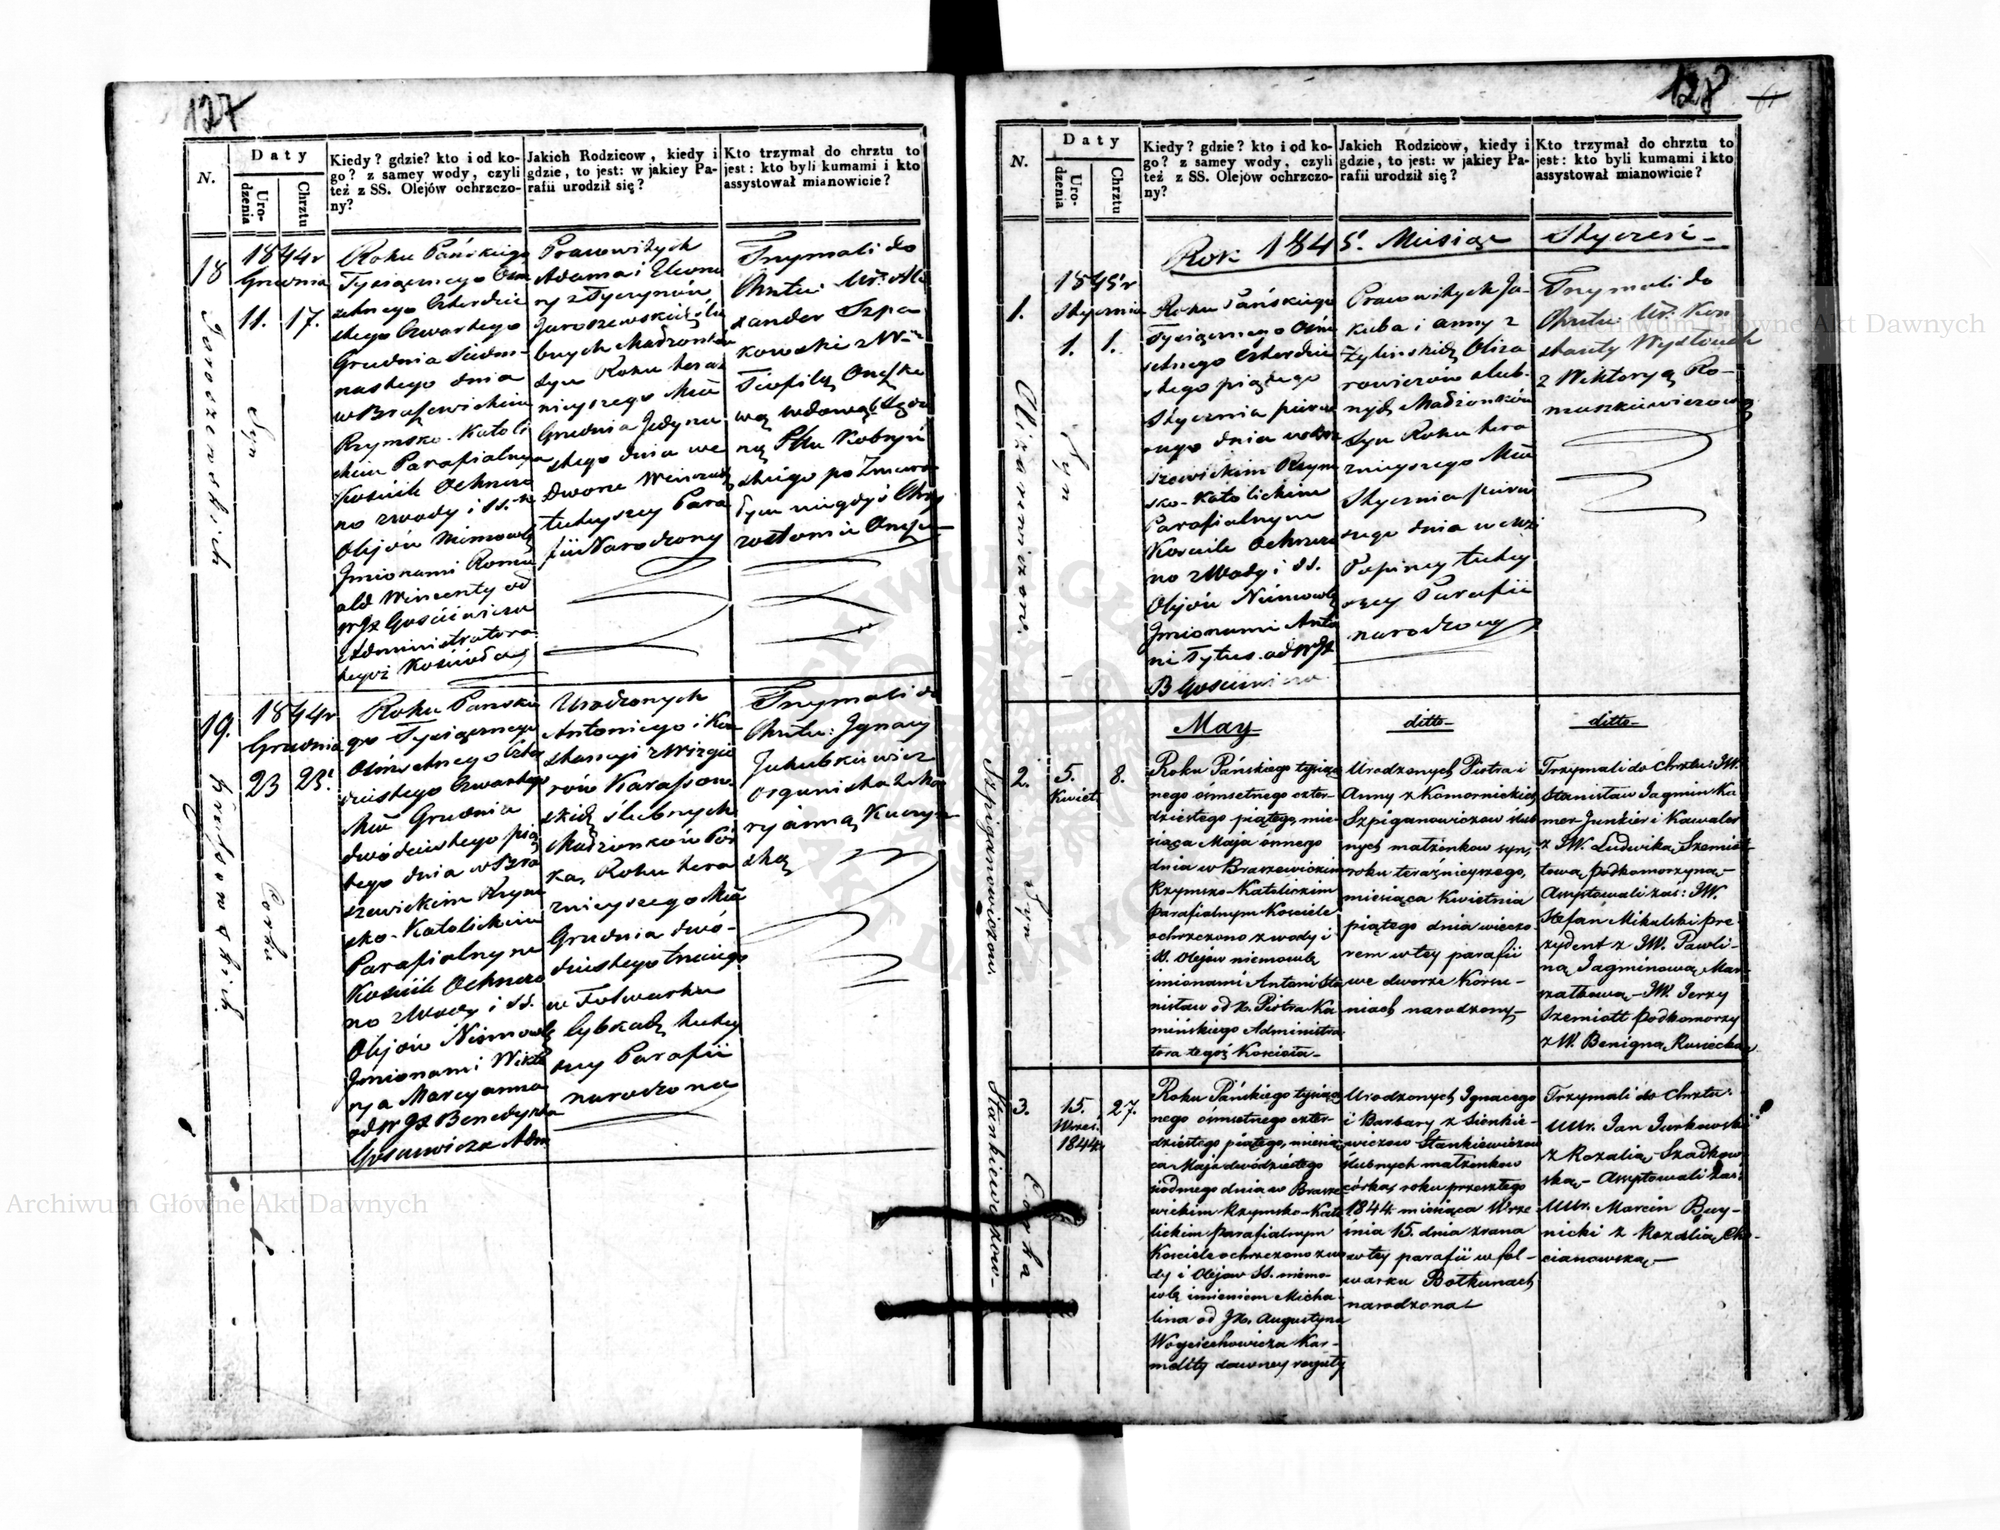 127
N.
Daty
Urodzenia
Chrztu
Kiedy? gdzie? kto i od ko-
go? z samey wody, czyli
też z SS. Olejów ochrzczo-
ny?
Jakich Rodziców, kiedy i
gdzie, to jest: w jakiey Pa-
rafii urodził się?
Kto trzymał do chrztu to
jest: kto byli kumami i kto
assystował mianowicie?
18
1844r
Grudnia
11. 17.
Syn
Roku Pańskiego
Tysiącznego Ośm
setnego Czterdzie
stego Czwartego
Grudnia Siedm-
nastego dnia
w Braszewickim
Rzymsko-Katoli
ckim Parafialnym
Kościele Ochrzczo
no z Wody i SS.
Olejów Niemowlę
Imionami Romu
ald Wincenty od
Administratora
tegoż Kościoła
Prawowitych
Adama i Eleono
ry z Tyszynów
Jaroszewskich ślu
bnych Małżonków
Syn Roku teraz
nieyszego Mca
Grudnia Jedyna
stego dnia we
Dworze
tuteyszey Para
fii Narodzony
Trzymali do
Chrztu: Ur. Ale
xander Szpa
kowski z W.
Teofilą
19.
1844r
Grudnia
23 23.
Córka
Roku Pańskie
go Tysiącznego
Ośmsetnego Czter
dziestego Czwartego
Mca Grudnia
dwódziestego
tego dnia w Bra
szewickim Rzym
sko-Katolickim
Parafialnym
Kościele Ochrzczo
no z Wody i SS.
Olejów Niemowlę
Imionami Wikto
rya Marcyanna
od
Urodzonych
Antoniego i Kon
stancyi
skich ślubnych
Małżonków Cór
ka, Roku tera
znieyszego Mca
Grudnia dwó-
dziestego trzeciego
w Folwarku
tutey
szey Parafii
narodzona
Trzymali do
Chrztu: Ignacy
Jakubkiewicz
organista z Ma
ryanną
128
61
N.
Daty
Urodzenia
Chrztu
Kiedy? gdzie? kto i od ko-
go? z samey wody, czyli
też z SS. Olejów ochrzczo-
ny?
Jakich Rodziców, kiedy i
gdzie, to jest: w jakiey Pa-
rafii urodził się?
Kto trzymał do chrztu to
jest: kto byli kumami i kto
assystował mianowicie?
Rok 1845. Miesiąc Styczeń-
1.
1845r
Stycznia
1. 1.
Syn
Roku Pańskiego
Tysiącznego Ośm
setnego Czterdzie
stego piątego
Stycznia pierw
szego dnia w Bra
szewickim Rzym
sko-Katolickim
Parafialnym
Kościele Ochrzczo
no z Wody i SS.
Olejów Niemowlę
Imionami Anto
ni Tytus od
Prawowitych Ja-
kuba i Anny z
Żylińskich Oliza
rowiczów ślub-
nych Małżonków
Syn Roku tera
znieyszego Mca
Stycznia pierw
szego dnia we wsi
tutey
szey Parafii
narodzony
Trzymali do
Chrztu: Ur. Kon
stanty Wysłouch
z Wiktoryą Ro-
maszkiewiczową
May
ditto-
ditto-
2.
5.
Kwiet.
8.
Szpiganowiczow
Syn
Roku Pańskiego tysiącz
nego ośmsetnego czter-
dziestego piątego, mie-
siąca Maja ósmego
dnia w Braszewickim
Rzymsko-Katolickim
Parafialnym Kościele
ochrzczono z wody i
SS. Olejow niemowlę
imionami Antoni Sta
nisław od X. Piotra Ka
mińskiego Administra
tora tegoż Kościoła-
Urodzonych Piotra i
Anny z Komornickich
Szpiganowiczow ślub
nych małżenkow syn,
roku teraznieyszego,
miesiąca Kwietnia
piątego dnia wieczo
rem w tey parafii
we dworze Korsu-
niach narodzony-
Trzymali do Chrztu: JW.
Stanisław Jagmin Ka
mer-Junkier i Kawaler
z JW. Ludwiką Szemiot
tową Podkomorzyną-
Assystowali zaś: JW.
Stefan Mikulski Pre-
zydent z JW. Pauli-
ną Jagminową Mar-
szałkową- JW. Jerzy
Szemiott Podkomorzy
z W. Benigną Rusiecką
3.
15.
Wrześ.
1844r
27.
Stankiewiczow-
Córka
Roku Pańskiego tysiącz
nego ośmsetnego czter-
dziestego piątego, miesią
ca Maja dwódziestego
siódmego dnia w Brasze
wickim Rzymsko-Kato
lickim parafialnym
Kościele ochrzczono z wo
dy i Olejow SS. niemo-
wlę imieniem Micha-
lina od JX. Augustyna
Woyciechowicza Kar-
melity dawney reguły
Urodzonych Ignacego
i Barbary z Sienkie-
wiczow Stankiewiczow
ślubnych małżenkow
córka, roku przeszłego
1844. miesiąca Wrze
śnia 15. dnia zrana
w tey parafii w fol-
warku Botkunach
narodzona-
Trzymali do Chrztu:
Ur. Jan Jurkowski
z Rozalią Szadkow-
ską- Assystowali zaś:
Ur. Marcin Buy-
nicki z Rozalią Cho-
cianowską-
Archiwum Główne Akt Dawnych
Archiwum Główne Akt Dawnych